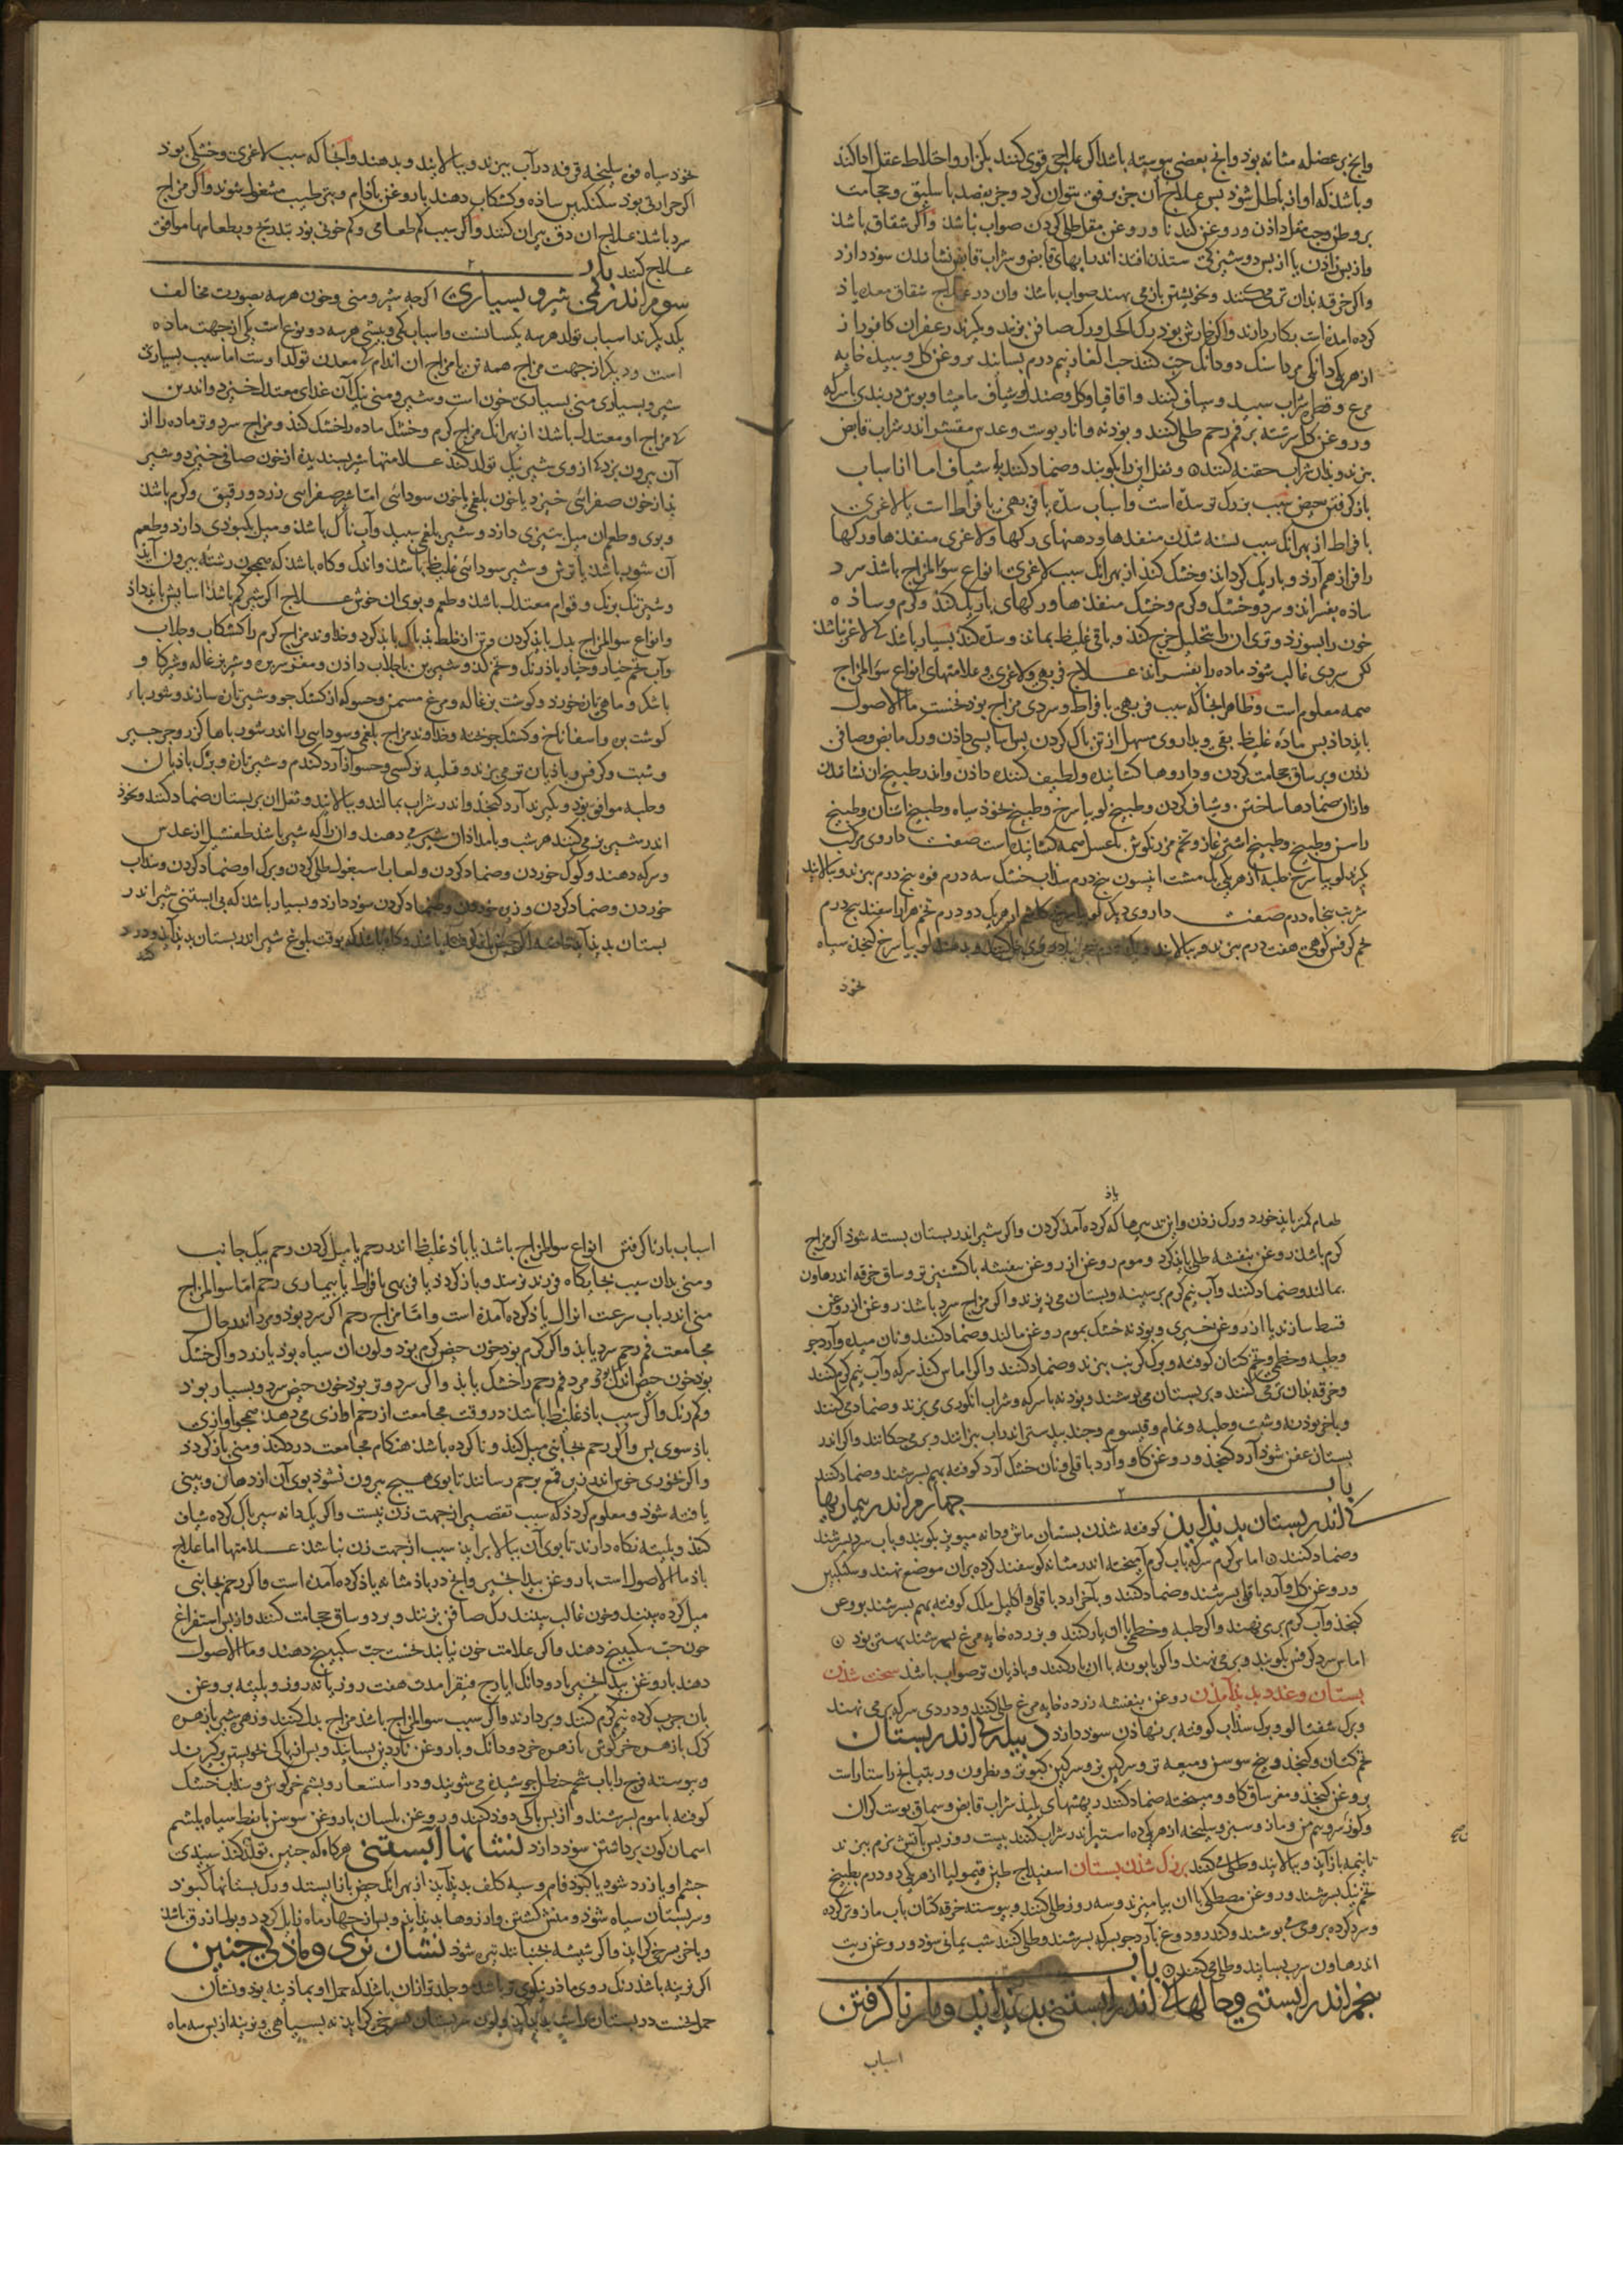 وانچ بر عضله مثانه بود وانچ بعضی پیوسته باشد اکر علاج قوی کنند بکزار واختلاط عقل ادا کند
وباشد که اواز باطل شود بس علاج آن جز برفق نتوان کرد وجز بفصد باسلیق وحجامت
واکر شقاق باشد
واز بس زادن یا از بس دوشیزکی ستدن افتد اندر ابهای قابض وشراب قابض نشاندن سود دارد
واکر خرقه بدان تر می کنند وبخویشتن باز می نهند صواب باشد وان در علاج شقاق مقعد یاذ
کرده امده است بکار دارند واکر خارش بود رک اکحل ورک صافن بزنند وبکیرند زعفران کافور از
از هر یکی دانکی مرداسنک دو دانک حب الغار نیم درم بسایند بروغن کل وسبیده خایه
مرغ وقطره شراب سبید وشیاف کنند واقاقیا وکل وصندل وشیاف مامیثا وبوش دربندی با سرکه
وروغن کل سرشته بر فم رحم طلی کنند وبودنه وانار بوست وعدس مقشر اندر شراب قابض
بزند وبدان شراب حقنه کنند وثفل این را بکوبند وضماد کنند یا شیاف اما اسباب
باز کرفتن حیض سبب بزرک تر سده است واسباب سده یا فربهی بافراط است یا لاغری
بافراط از بهر انک سبب بسته شدن منفذها ودهنهای رکها ولاغری منفذها ورکها
را فراز هم آرد وباریک کرداند وخشک کند از بهر انک سبب لاغری انواع سؤ المزاج باشد سرد
ساده بفسراند وسرد وخشک وکرم وخشک منفذها ورکهای باریک کند وکرم وساده
خون را بسوزد وتری ان را بتحلیل خرج کند وباقی غلیظ بماند وسده کند بسیار باشد کی لاغر نباشد
لکن سردی غالب شود ماده را بفسراند علاج فربهی ولاغری وعلامتهای انواع سؤ المزاج
همه معلوم است وظاهر انجا که سبب فربهی بافراط وسردی مزاج بود نخست ما الاصول
باید داد بس ماده غلیظ بقی وبداروی مسهل از تن باک کردن بس اسایش دادن ورک مابض وصافن
زدن وبر ساق حجامت کردن وداروها کشاینده ولطیف کننده دادن واندر طبیخ ان نشاندن
وازان ضمادها ساختن وشیاف کردن وطبیخ لوبیا سرخ وطبیخ نخود سیاه وطبیخ اشنان وطبیخ
راسن وطبیخ اشترغاز وتخم مرزنکوش با عسل همه کشاینده است صفت داروی مرکب
بکیرند لوبیا سرخ حلبه از هر یکی یک مشت انیسون بنج درم سذاب خشک سه درم فوه بنج درم ببزند وببالایند
شربت بنجاه درم صفت داروی دیکر لوبیا سرخ از هر یک دو درم تخم هزار اسفند بنج درم
تخم کرفس کوهی هفت درم ببزند وببالایند لوبیا سرخ کنجد سیاه
نخود
نخود سیاه فوه سلیخه قرفه در آب ببزند وببالایند وبدهند وانجا که سبب لاغری وخشکی بود
اکر حرارتی بود سکنکبین ساده وکشکاب دهند با روغن بادام وبترطیب مشغول شوند واکر مزاج
سرد باشد علاج ان دق بیران کنند واکر سبب کم طعامی وکم خونی بود بتدریج وبطعامها موافق
علاج کنند باب
سوم اندر کمی شیر وبسیاری اکر چه شیر ومنی وخون هر سه بصورت مخالف
یکدیکرند اسباب تولد هر سه یکسانست واسباب کمی وبیشی هر سه دو نوع است یکی از جهت ماده
است ودیکر از جهت مزاج همه تن یا مزاج ان اندام کی معدن تولد اوست اما سبب بسیاری
شیر وبسیاری منی بسیاری خون است وشیر ومنی نیک آن غدای معتدل خیزد واندر تن
کی مزاج او معتدل باشد از بهر انک مزاج کرم وخشک ماده را خشک کند ومزاج سرد وتر ماده را از
آن بیرون برد کی از وی شیر نیک تولد کند علامتها شیر بسندیده از خون صافی خیزد وشیر
بد از خون صفرائی خیزد یا خون بلغمی یا خون سودائی اما شیر صفرائی زرد ورقیق وکرم باشد
وبوی وطعم ان میل بتیزی دارد وشیر بلغمی سبید وآب ناک باشد ومیل بکبودی دارد وطعم
آن شور باشد یا ترش وشیر سودائی غلیظ باشد واندک وکاه باشد که همچون رشته بیرون آید
وشیر تنک برنک وقوام معتدل باشد وطعم وبوی ان خوش علاج اکر شیر کم باشد اسایش باید داد
وانواع سوالمزاج بدل باید کردن وتن از خلط بد باک باید کرد وخداوند مزاج کرم را کشکاب وجلاب
وآب تخم خیار وخیار باذرنک وتخم کدو
باشکر وماهی تازه خورد وکوشت بزغاله ومرغ مسمن وحسو که از کشک جو وشیر تازه سازند وشوربا
کوشت بره واسفاناخ وکشک جو بخته وخداوند مزاج بلغمی وسودایی را اندر شورباها کزر وجرجیر
وشبت وکرفس وبادیان تر می بزند وقلیه نرکسی وحسو از آرد کندم وشیر تازه وبرک بادیان
وحلبه موافق بود وبکیرند آرد کنجد واندر شراب بمالند وببالایند وثفل ان بر بستان ضماد کنند ونخود
اندر شیر تر می کنند هر شب وبامداد ان شیر می دهند وانرا که شیر باشد طفشیل از عدس
وسرکه دهند وکوک خوردن وضماد کردن ولعاب اسبغول طلی کردن وبرک او ضماد کردن وسداب
خوردن وضماد کردن وزیره خوردن وضماد کردن سود دارد وبسیار باشد که بی ابستنی شیر اندر
بستان بدید آید بوقت بلوغ شیر اندر بستان بدید آید ودرد
کند
طعام کمتر باید خورد ورک زدن واین تدبیرها که یاذ کرده آمد کردن واکر شیر اندر بستان بسته شود اکر مزاج
کرم باشد روغن بنفشه طلی باید کرد وموم روغن از روغن بنفشه با کشنیز تر وساق خرفه اندر هاون
بمالند وضماد کنند وآب نیم کرم بر سینه وبستان می ریزند واکر مزاج سرد باشد روغن از روغن
قسط سازند یا از روغن خیری وبودنه خشک بموم روغن مالند وضماد کنند ونان میده وآرد جو
وحلبه وخطمی وتخم کتان کوفته وبرک کرنب ببزند وضماد کنند واکر اماس کند سرکه وآب نیم کرم کنند
وخرقه بدان تر می کنند وبر بستان می بوشند وبودنه با سرکه وشراب انکوری می بزند وضماد می کنند
وباخر بودنه وشبت وحلبه ونمام وقیسوم وجند بیدستر اندر اب ببزانند وبر می جکانند واکر اندر
بستان عفن شود آرد کنجد وروغن کاو وآرد باقلی ونان خشک آرد کوفته بهم بسرشند وضماد کنند
باب جهارم اندر بیماریها
کی اندر بستان بدید آید کوفته شدن بستان ماش ودانه مویز بکوبند وباب سرد بسرشند
وضماد کنند اماس کرم سرکه باب کرم آمیخته اندر مثانه کوسفند کرده بران موضع نهند وسکنکبین
وروغن کل وآرد باقلی بسرشند وضماد کنند وبآخر ارد باقلی واکلیل ملک کوفته بهم بسرشند بروغن
کنجد وآب کرم بر می نهند واکر حلبه وخطمی با ان یار کنند وبزرده خایه مرغ بسرشند بهتر بود
اماس سرد کرفس بکوبند وبر می نهند واکر بابونه با ان یار کنند وبادیان تر صواب باشد سخت شدن
بستان وغدد بدید آمدن روغن بنفشه زرده خایه مرغ طلی کنند ودردی سرکه بر می نهند
وبرک شفتالو وبرک سداب کوفته بر نهادن سود دارد دبیله کی اندر بستان
تخم کتان وکنجد وبیخ سوسن ومیعه تر وسرکین بز وسرکین کبوتر ونطرون
بروغن کنجد ومغز ساق کاو ضماد کنند شراب قابض وسماق بوست کران
اندر شراب کنند بیست روز بس بآتش نرم ببزند
تا نیمه باز آید وببالایند وطلی کنند بزرک شدن بستان اسفیداج طین قیمولیا از هر یکی دو درم بطبیخ
تخم بنک بسرشند وروغن مصطکی با ان بیامیزند وسه روز طلی کنند وبیوسته خرقه کتان باب مازو تر کرده
وسرد کرده بر وی می بوشند وکندر ودوغ با آرد جو بسرکه بسرشند وطلی کنند شب یمانی سود وروغن زیت
اندر هاون سرب بسایند وطلی می کنند باب
بنجم اندر ابستنی وحالها کی اندر ابستنی بدید آید وبار نا کرفتن
اسباب
اسباب بار نا کرفتن انواع سوالمزاج باشد یا باد غلیظ اندر رحم یا میل کردن رحم بیک جانب
ومنی بدان سبب بجایکاه فرزند نرسد وباز کردد یا فربهی بافراط یا بیماری رحم اما سوالمزاج
منی اندر باب سرعت انزال یاذ کرده آمده است واما مزاج رحم اکر سرد بود مرد اندر حال
مجامعت فم رحم سرد یابد واکر کرم بود خون حیض کرم بود ولون ان سیاه بود یا زرد واکر خشک
بود خون حیض اندک بود مرد فم رحم را خشک یابد واکر سرد وتر بود خون حیض سرد وبسیار بود
وکم رنک واکر سبب باد غلیظ باشد در وقت مجامعت از رحم اوازی می دهد همچو آوازی
باد سوی بس واکر رحم بجانبی میل کند ونا کرده باشد هنکام مجامعت درد کند ومنی باز کردد
واکر بخوری خوش اندر زیر قمع برحم رسانند تا بوی هیچ بیرون نشود بوی آن از دهان وبینی
یافته شود ومعلوم کردد که سبب تقصیر از جهت زن نیست واکر یک دانه سیر باک کرده شیاف
کند وبلیته نکاه دارند تا بوی آن ببالا براید سبب از جهت زن نباشد علامتها اما علاج
باد ما الاصول است با روغن بید انجیر وانچ در باد مثانه یاذ کرده آمده است واکر رحم بجانبی
میل کرده بینند وخون غالب بینند رک صافن بزنند وبر دو ساق حجامت کنند واز بس استفراغ
خون حب سکبینج دهند واکر علامت خون نیابند نخست حب سکبینج دهند وما الاصول
دهند با روغن بید انجیر با دو دانک ایارج فیقرا مدت هفت روز یا نه روز وبلیته بروغن
بان جرب کرده نیم کرم کنند وبردارند واکر سبب سوالمزاج باشد مزاج بدل کنند وزهره شیر یا زهره
کرک یا زهره خرکوش یا زهره خرس دو دانک وبا روغن ناردین بسایند وبس از باکی بخویشتن برکیرند
وبیوسته فرج را باب شحم حنظل جوشیده می شویند ومر وبشم خرکوش وسداب خشک
کوفته با موم بسرشند واز بس باکی دود کنند وروغن بلسان با روغن سوسن یا نفط سیاه ببشم
اسمان کون برداشتن سود دارد نشانها آبستنی هرکاه که جنین تولد کند سبیدی
جشم او یا زرد شود یا کبود فام وسیه کلف بدید آید از بهر انک حیض باز ایستد ورک بستانها کبود
وسر بستان سیاه شود ومنش کشتن وارزوها بدید آید وبس از جهار ماه زایل کردد وبول ازرق باشد
وباخر بسرخی کراید واکر شیشه بجنبانند تیره شود نشان نری ومادکی جنین
اکر نرینه باشد رنک روی مادر نیکوتر باشد وجلد تر ازان باشد که حمل او بمادینه بود ونشان
حمل نخست در بستان راست بدید آید ولون سر بستان بسرخی کراید نه بسیاهی ونرینه از بس سه ماه